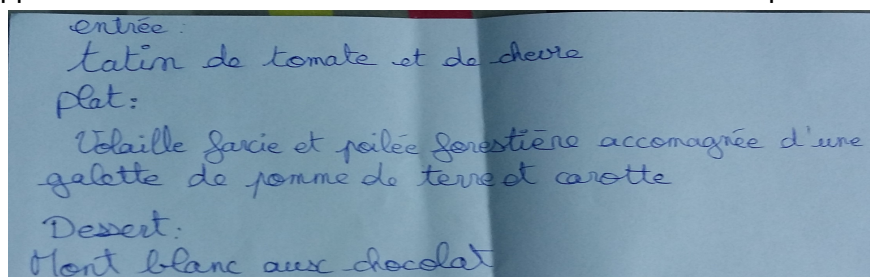 entrée:
tatin de tomate et de chevre
plat:
Volaille farcie et poilée forestière accomagnée d'une
galette de pomme de terre et carotte
Dessert:
Mont blanc aux chocolat